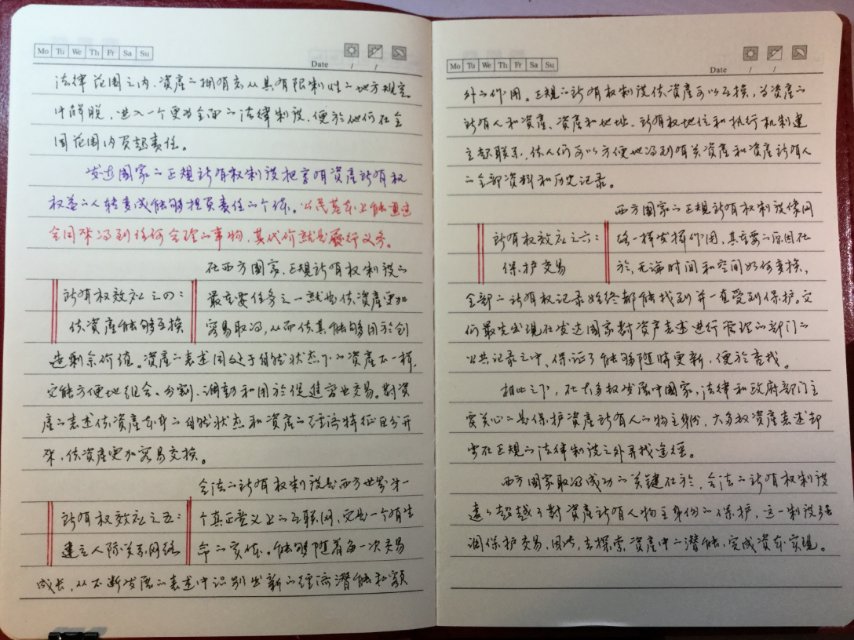 Mo Tu We Th Fr Sa Su
Date / /
法律范围之内,资产的拥有者从具有限制性的地方规定
中解脱,进入一个更为全面的法律制度,便于他们在全
国范围内负起责任。
发达国家的正规所有权制度把享有资产所有权
权益的人转变成能够担负责任的个体。公民基本上能通过
合同来得到任何合理的事物,其代价就是履行义务。
在西方国家,正规所有权制度的
所有权效应之四:
使资产能够互换
最重要任务之一就是使资产更加
容易取得,从而使其能够用于创
造剩余价值。资产的表述因处于自然状态下的资产不一样,
它能方便地组合、分割、调动和用于促进商业交易。对资
产的表述使资产本身的自然状态和资产的经济特征区分开
来,使资产更加容易交换。
合法的所有权制度是西方世界第一
所有权效应之五:
建立人际关系网络
个真正意义上的互联网,它是一个有生
命的实体。能够随着每一次交易
成长,从不断发展的表述中识别出新的经济潜能和额
Mo Tu We Th Fr Sa Su
Date / /
外的作用。正规的所有权制度使资产可以互换,为资产的
所有人和资产、资产和地址、所有权地位和执行机制建
立起联系,使人们可以方便地得到有关资产和资产所有人
的全部资料和历史记录。
西方国家的正规所有权制度像网
所有权效应之六:
保护交易
络一样发挥作用,其重要的原因在
于,无论时间和空间如何变换,
全部的所有权记录始终都能找到并一直受到保护。它
们最先出现在发达国家对资产表述进行管理的部门的
公共记录之中,保证了能够随时更新,便于查找。
相比之下,在大多数发展中国家,法律和政府部门主
要关心的是保护资产所有人的物主身份,大多数资产表述却
要在正规的法律制度之外寻找途径。
西方国家取得成功的关键在于,合法的所有权制度
远远超越了对资产所有人物主身份的保护,这一制度强
调保护交易,因此,去探索资产中的潜能,完成资本实现。